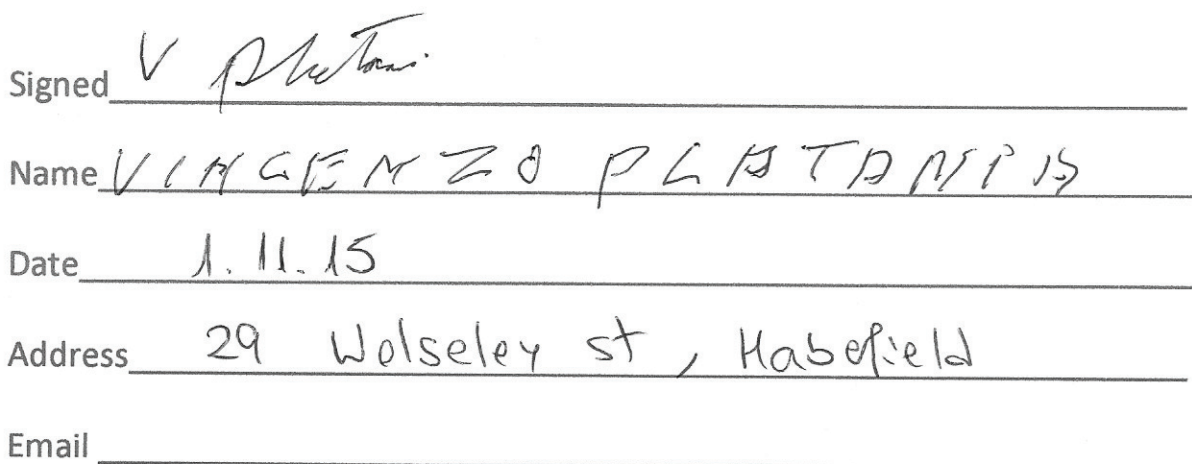 Signed V Platani
Name VINCENZO PLATANIA
Date 1.11.15
Address 29 Wolseley st, Habefield
Email